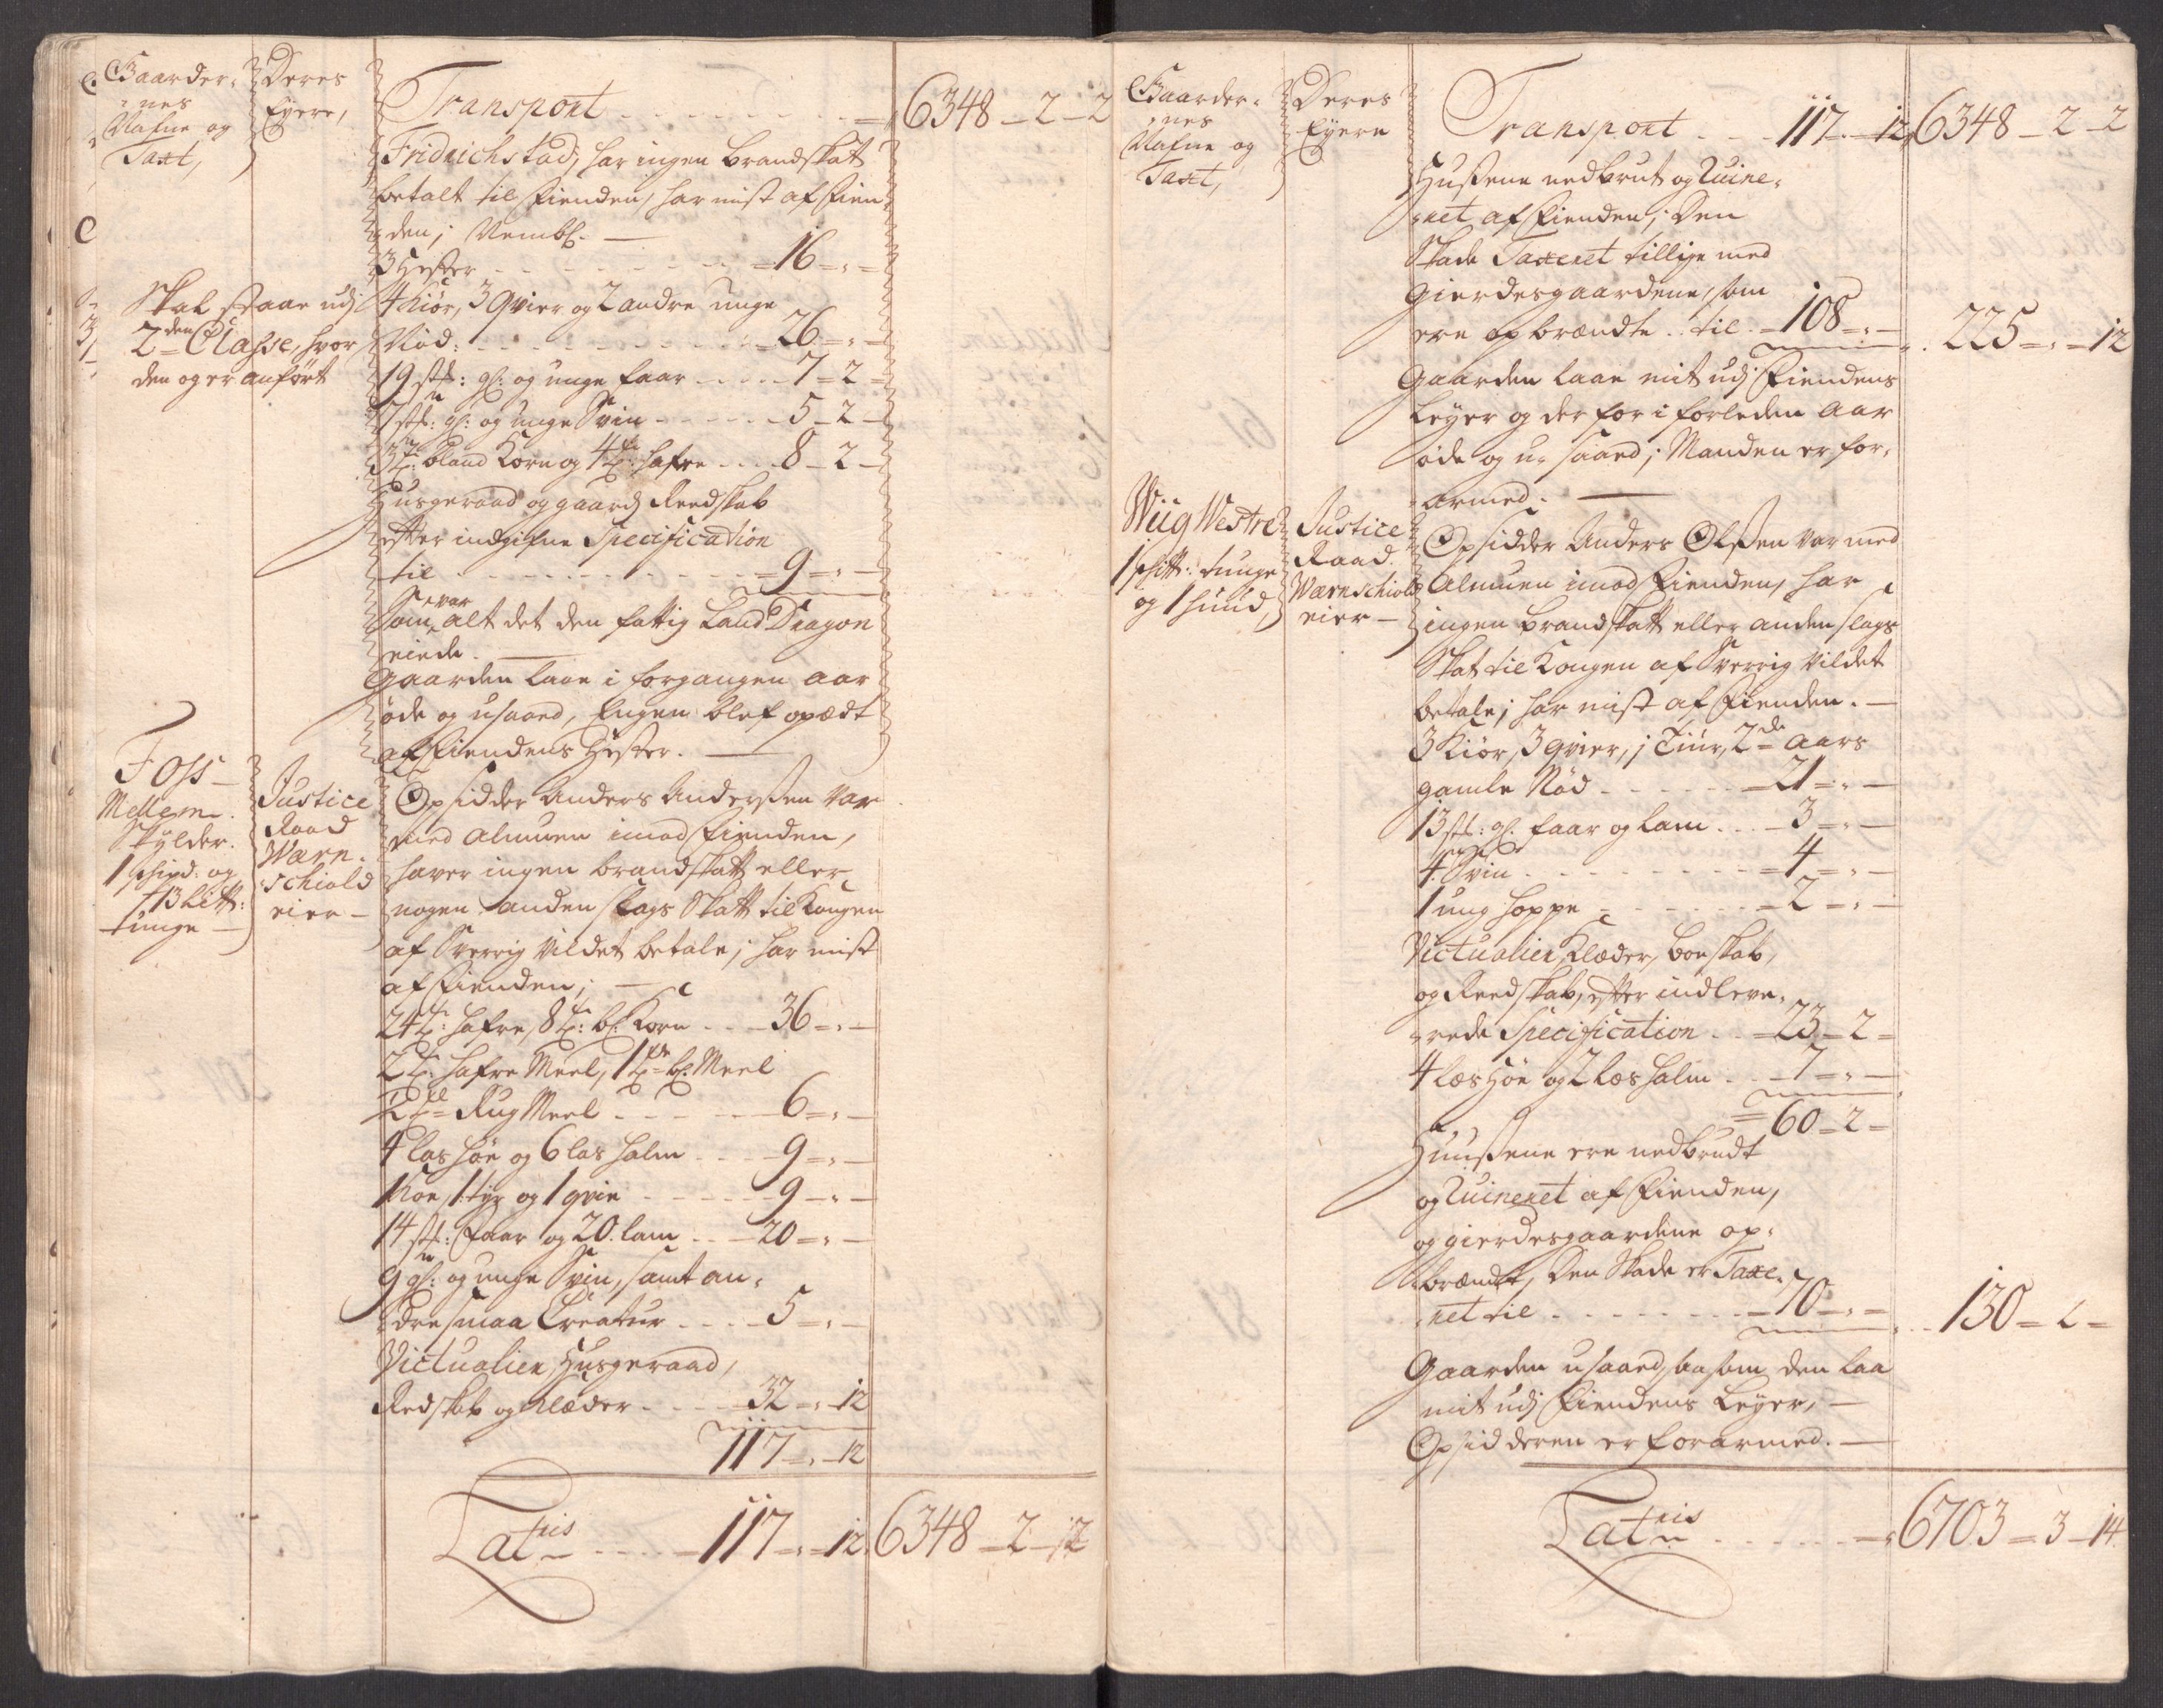 Gaarder-
nes
Nafne og
Taxt,
Deres
Eyere,
Transport - - - - - 6348 - 2 - 2
Fridrichstad, har ingen brandskat
betalt til Fienden, har mist af Fien-
den; Nembl. —
3 Hester - - - - - 16 - „ -
Skal staae udj
2den Classe, hvor
den og er anført
4 Kiør, 3 Qvier og 2 andre unge
Nød: - - - - - 26 - „ -
19 stk: gl: og unge faar - - - - 7 - 2 -
7 stk: gl: og unge Svin - - - - 5 - 2 -
3 Tr: bland Korn og 4 Tr: hafre - - - 8 - 2 -
Husgeraad og gaards Reedskab
efter indgifne Specification
til - - - - - 9 - „ -
Som var alt det den fattig Land Dragon
eiede. —
Gaarden laae i forgangen aar
øde og usaaed, Engen blef opædt
af Fiendens Hester. —
Foss
Mellem.
Skylder.
1 schpd: og
13 Litt:
tunge —
Justice
Raad
Wærn-
schiold
eier —
Opsidder Anders Anderssen var
med Almuen imod Fienden,
haver ingen brandskatt eller
nogen anden slags Skatt til Kongen
af Sverrig vildet betale; har mist
af Fienden; —
24 Tr: hafre, 8 Tr: bl: Korn - - - 36 - „ -
2 Tr: hafre Meel, 1 Tr bl: Meel
Rug Meel - - - - 6 - „ -
4 las høe og 6 las halm - - - 9 - „ -
1 Koe, 1 tyr og 1 qvie - - - - 9 - „ -
14 stk: Faar og 20. lam - - - 20 - „ -
9 gl: og unge Svin, samt an-
dre smaa Creatur - - - - 5 - „ -
Victualier, Husgeraad,
Redskab og Klæder - - - - 32 - „ - 12
117 - „ - 12
Latris - - - - 117 - „ - 12 6348 - 2 - 2
Gaarder-
nes
Nafne og
Taxt,
Deres
Eyere
Transport - - - 117 - „ - 12 6348 - 2 - 2
Hussene nedbrut og Ruine-
ret af Fienden; Den
Skade Taxeret tillige med
Gierdesgaardene, som
ere opbrændte.. til. 108 - „ - 225 - „ - 12
Gaarden laae mit udj Fiendens
Leyer og derfor i forleden Aar
øde og u-saaed; Manden er for-
armed. —
Wiig Westre
1 schtt: tunge
og 1 huud,
Justice
Raad.
Wærnschiold
eier —
Opsidder Anders Olssen var med
Almuen imod Fienden, har
ingen brandskatt eller anden slags
Skat til Kongen af Sverrig vildet
betale; har mist af Fienden. —
3 Kiør, 3 qvier, 1 Tiur, 2de Aars
gamle Nød - - - - - 21 - „ -
13 stk: gl. faar og lam - - - 3 - „ -
4. Svin - - - - - 4 - „ -
1 ung hoppe - - - - - 2 - „ -
Victualier, Klæder, boeskab,
og Reedskab, efter indleve-
rede Specification - - 23 - 2 -
4 læs Høe og 2 læs halm - - - 7 - „ -
60 - 2 -
Huussene ere nedbrudt
og Ruineret af Fienden,
og gierdesgaardene op-
brændt, Den Skade er Taxe-
ret til - - - - - 70 - „ - 130 - 2 -
Gaarden usaaed, saasom den laa
mit udj Fiendens Leyer, —
Opsidderen er forarmed. —
Latris - - - - - 6703 - 3 - 14.